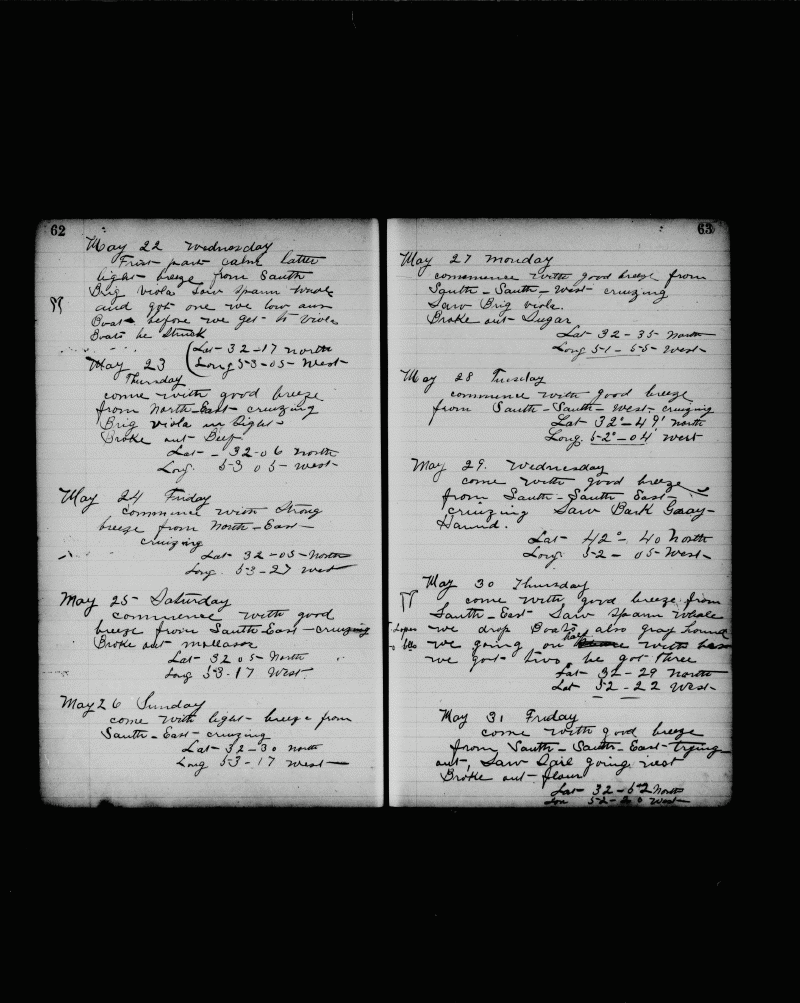 62
May 22 Wednesday
First part calm latter
light breeze from South
Brig Viola Saw Sparm whale
and got one we low our
Boat before we get to Viola
Boats he Struck
Lat 32-17 North
May 23
Long 53-05 West
Thursday
come with good breeze
from North East cruizing
Brig viola in Sight
Broke out Beef
Lat - 32-06 North
Long. 53 05 West
May 24 Friday
commence with Strong
breeze from North-East
cruizing
Lat 32-05 North
Long. 53-27 West
May 25 Saturday
commence with good
breeze from South East cruizing
Broke out mollasses
Lat 32 05 North
Long 53-17 West.
May 26 Sunday
come with light breeze from
South-East cruizing
Lat 32-30 North
Long 53-17 West
63
May 27 Monday
commence with good breeze from
South-South-West cruizing
Saw Brig viola.
Broke out Sugar
Lat 32-35 North
Long 51-55 West
May 28 Tuesday
commence with good breeze
from South-South-West cruizing
Lat 32°-49' North
Long. 52°-04' West
May 29. Wednesday
come with good breeze
from South-South East
cruizing Saw Bark Gray-
Hound.
Lat 42°-40 North
Long. 52-05 West
May 30 Thursday
come with good breeze from
South-East Saw Sparm Whale
we drop Boats also gray hound
we going on half with
we got two he got three
Lat 32-29 North
Lat 52-22 West
May 31 Friday
come with good breeze
from South-South-East trying
out, Saw Sail going west
Broke out flour
Lat 32-52 North
Lon 52-20 West